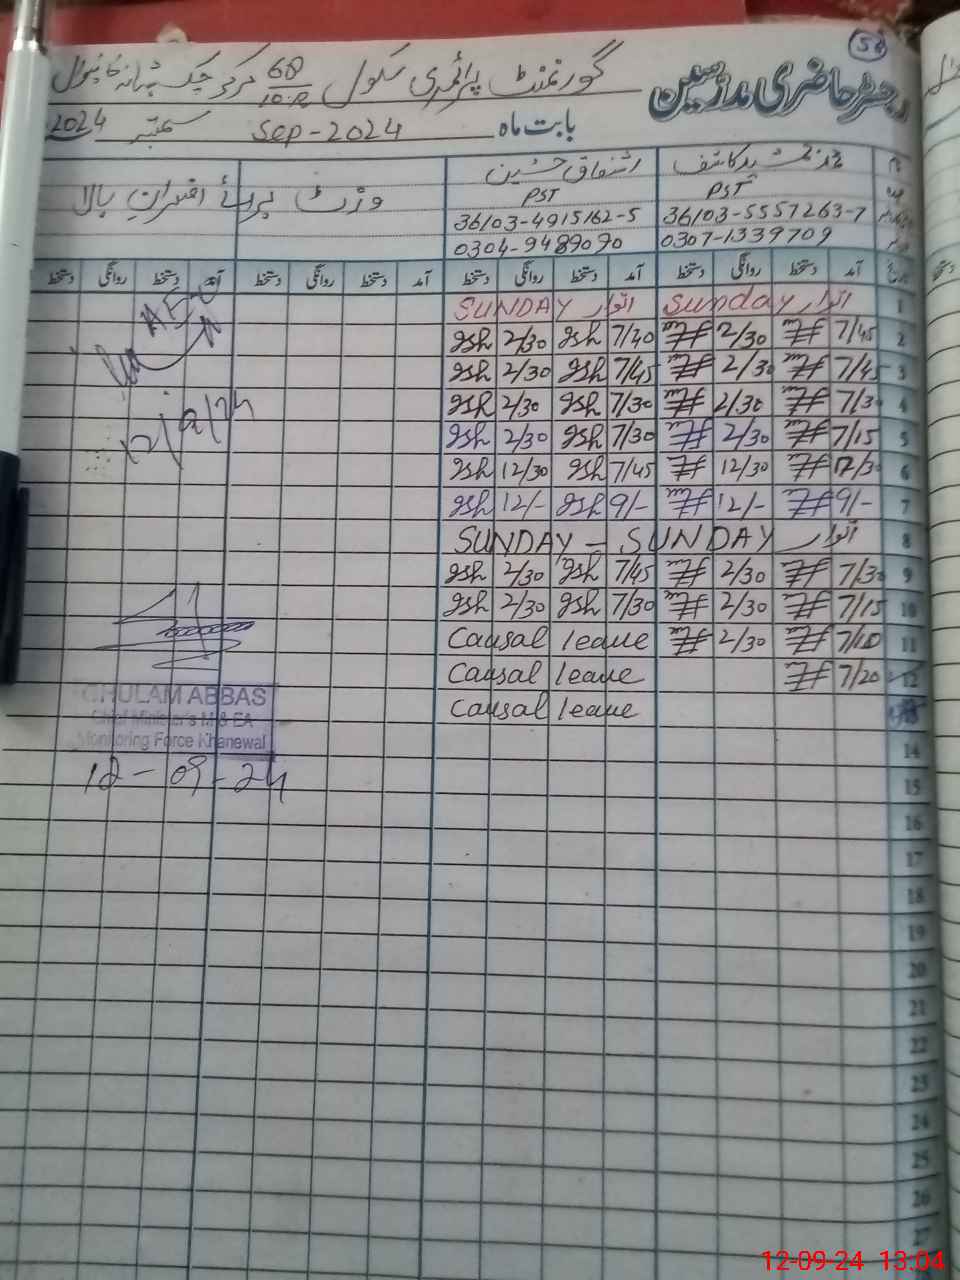 53
رجسٹر حاضری مدرسین
گورنمنٹ پرائمری سکول 68/10.R مرکز چک
بابت ماہ Sep-2024 ستمبر 2024
نام اشفاق حسین
PST PST وزٹ برائے افسران بالا
36103-5557263-7 36103-4915162-5
0307-1339709 0304-9489090
تاریخ آمد دستخط روانگی دستخط آمد دستخط روانگی دستخط آمد دستخط روانگی دستخط آمد دستخط روانگی دستخط
1 اتوار Sunday اتوار SUNDAY
2 7/45 2/30 7/40 gsh 2/30 gsh
3 7/45 2/30 7/45 gsh 2/30 gsh
4 7/30 2/30 7/30 gsh 2/30 gsh
5 7/15 2/30 7/30 gsh 2/30 gsh
6 12/30 7/45 gsh 12/30 gsh
7 9/- 12/- 9/- gsh 12/- gsh
8 اتوار SUNDAY - SUNDAY
9 7/30 2/30 7/45 gsh 2/30 gsh
10 7/15 2/30 7/30 gsh 2/30 gsh
11 7/10 2/30 Causal leave
12 7/20 Causal leave
Causal leave
14
15
16
17
18
19
20
21
22
23
24
25
26
27
12/9/24
GHULAM ABBAS
Chief Minister's M & EA
Monitoring Force Khanewal
12-09-24
12-09-24 13:04